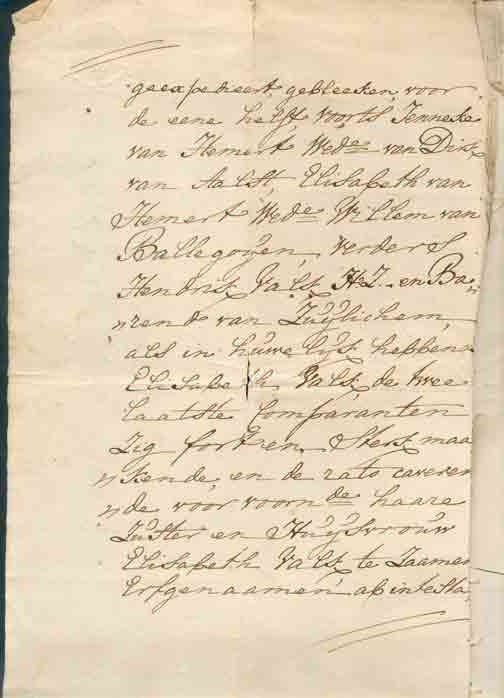 geexpedieert, gebleeken, voor
de eene helft, voorts Jenneke
van Hemert Wede van Dirk
van Aalst, Elisabeth van
Hemert Wede Willem van
Ballegoijen, verders
Hendrik Valk HZ. en Ba¬
„rend van Zuijlichem,
als in huwelijk hebbende
Elisabeth Valk de twee
laatste Comparanten
zig fort en sterk maa
„kende, en de rato caveren
„de voor voornde haare
Zuster en Huijsvrouw
Elisabeth Valk te Zaamen
Erfgenaamen ab intesta